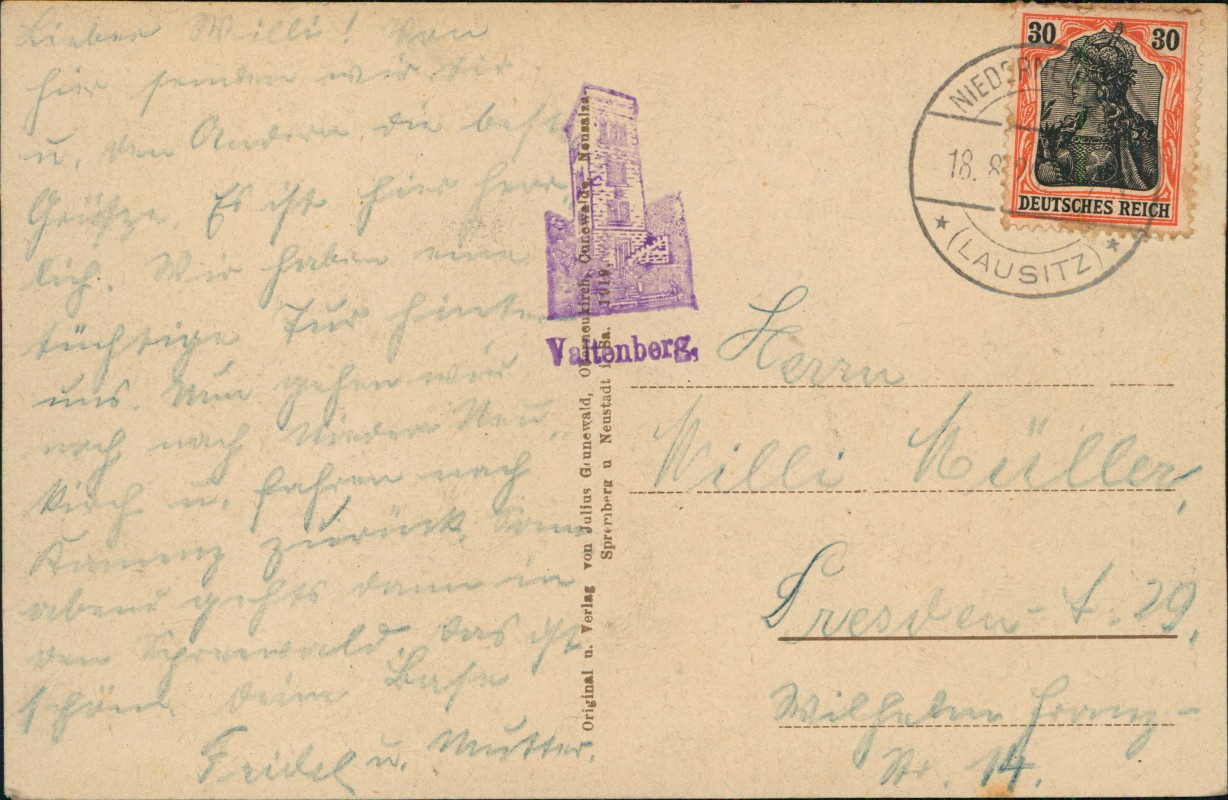 Lieber Willi! Von
hier senden wir dir
u. den Andern die best
Grüße. Es ist hier herr
lich. Wir haben eine
tüchtige Tur hinter
uns. Nun gehen wir
noch nach Nieder Neu
kirch u. fahren nach
Kamenz zurück. Sonn
abend gehts dann in
den Spreewald. Das ist
schön. Deine Base
Fridel u. Mutter.
Valtenberg.
Original u. Verlag von Julius Grunewald, Oberneukirch, Cunewalde, Neusalza-
Spremberg u Neustadt i. Sa. 1919.
30 30
DEUTSCHES REICH
NIEDERNE
18. 8
(LAUSITZ)
Herrn
Willi Müller,
Dresden-A. 29,
Wilhelm Franz-
Str. 14.